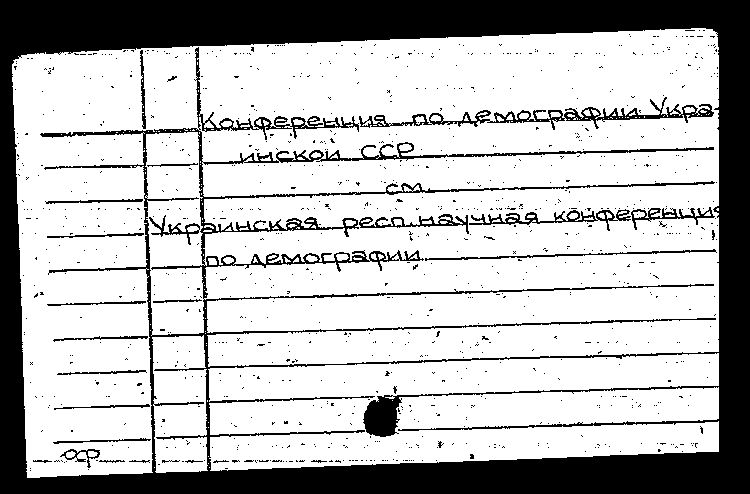 Конференция по демографии Укра-
инской ССР
см.
Украинская респ. научная конференция
по демографии
оср